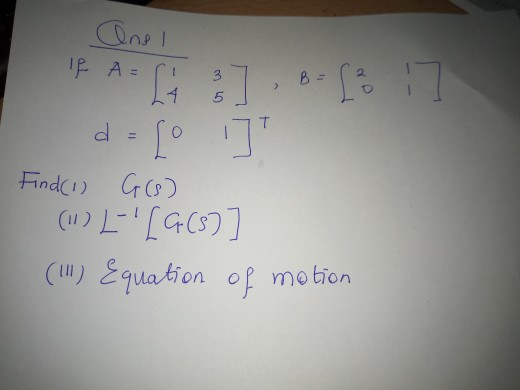 Qns 1
If A = [1 3
4 5], B = [2 1
0 1]
d = [0 1]ᵀ
Find (i) G(s)
(ii) L⁻¹[G(s)]
(iii) Equation of motion